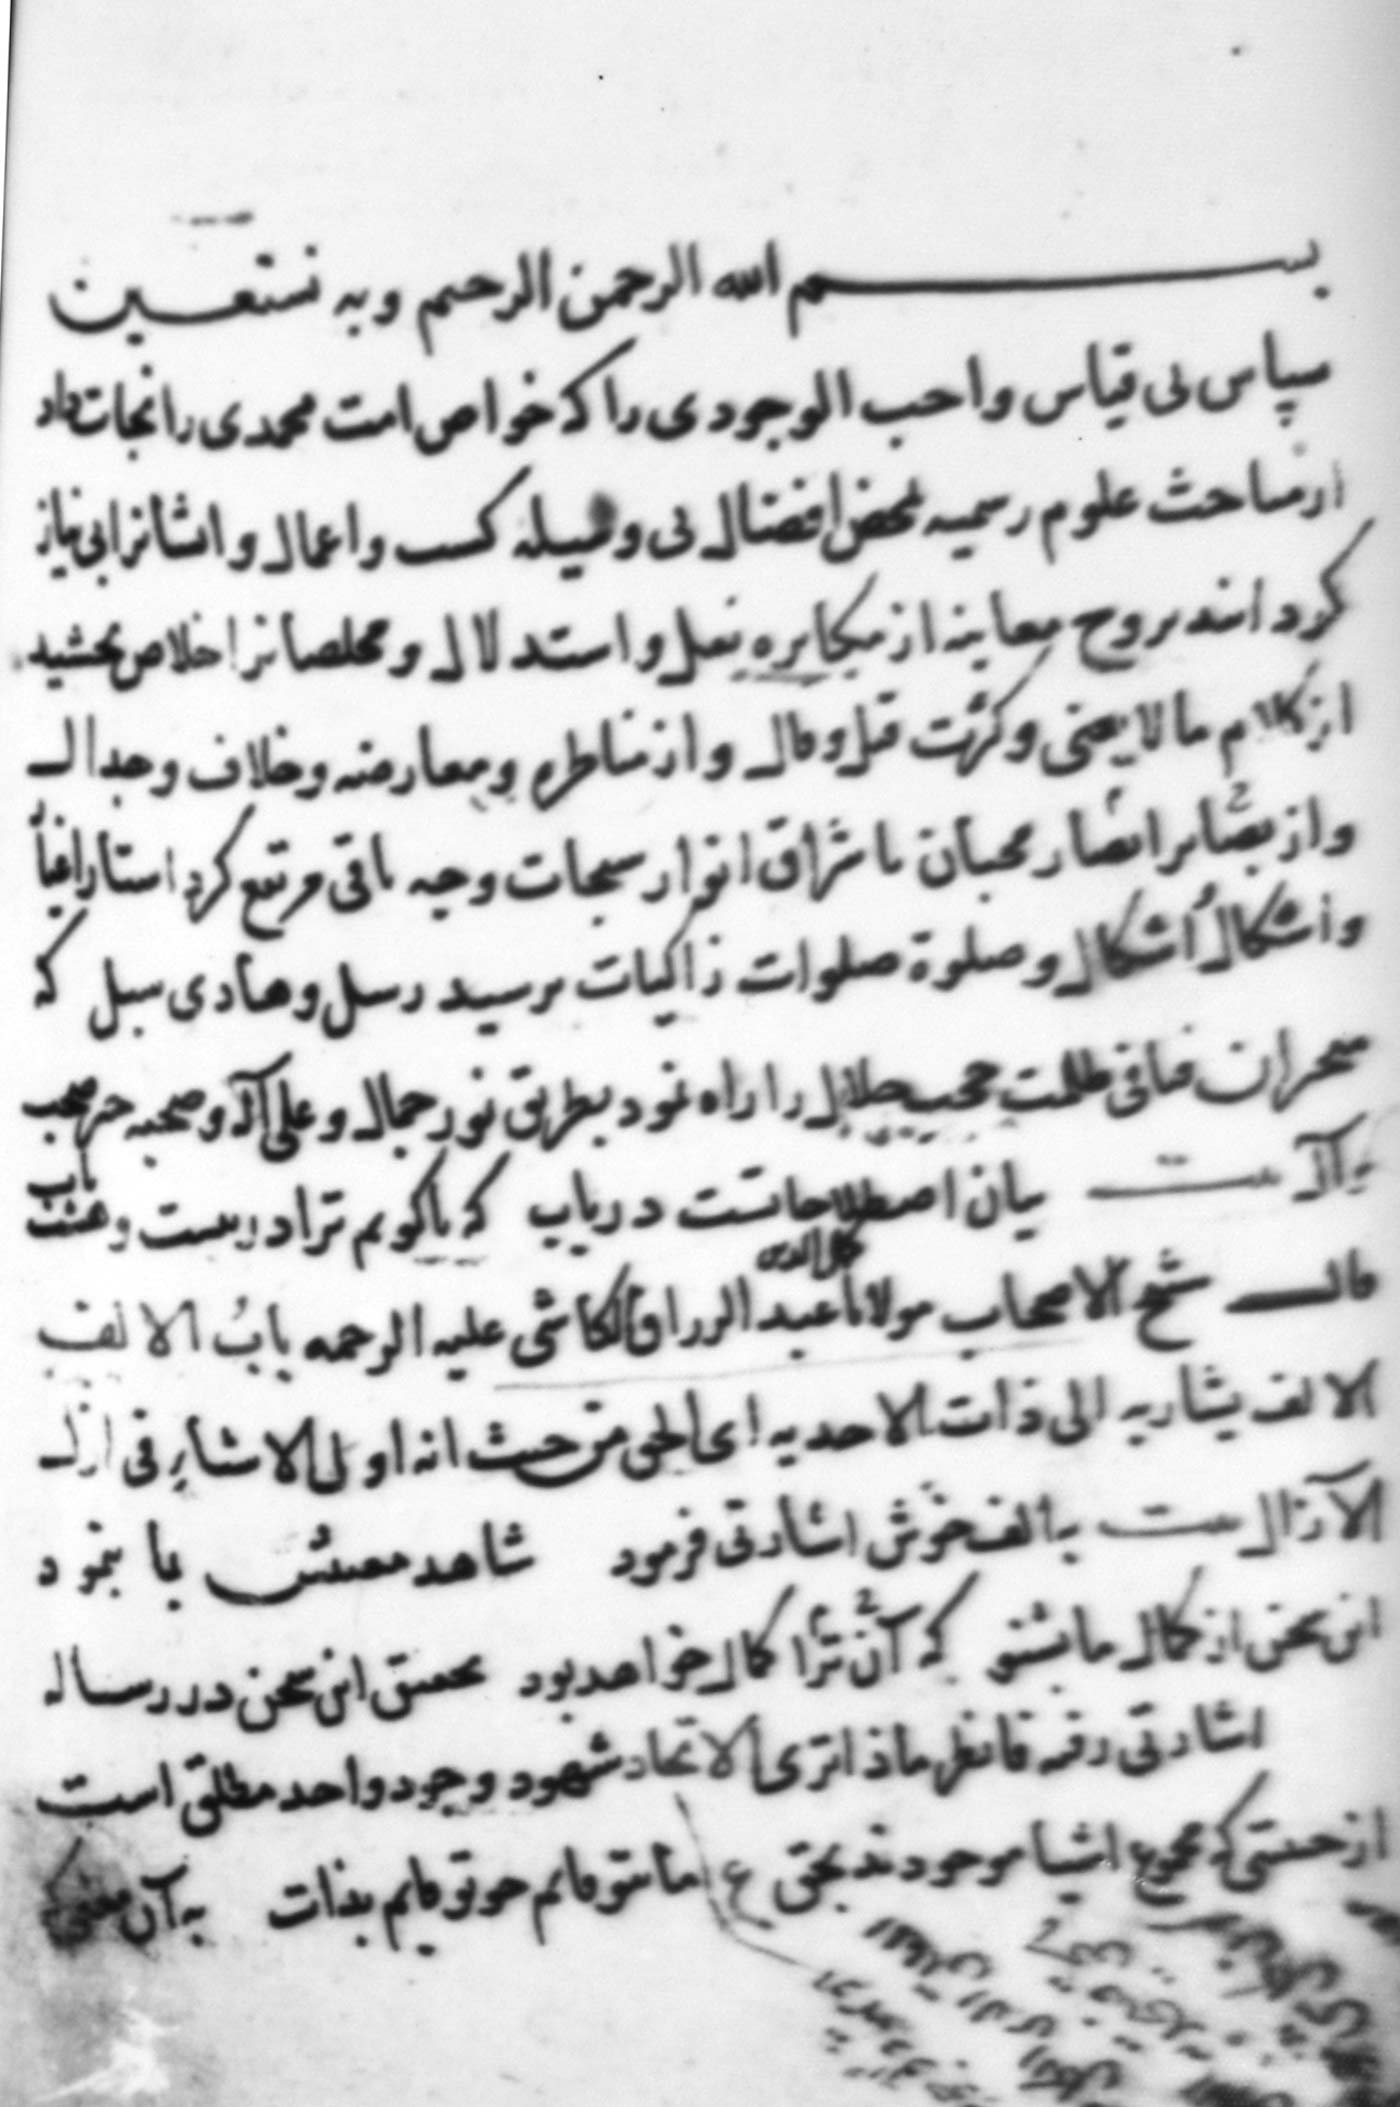 بسم الله الرحمن الرحيم وبه نستعين
سپاس بی قیاس واجب الوجودی را که خواص امت محمدی را نجات داد
از مباحث علوم رسمیه بمحض افضال بی وسیله کسب و اعمال و ایشانرا بی نیاز
کردانند بروح معاینه از مکابره نقل و استدلال و مخلصانرا خلاص بخشید
از کلام مالایعنی و کثرت قیل و قال و از مناظره و معارضه و خلاف و جدال
و از بصایر ابصار محبان باشراق انوار سبحات وجه باقی مرتفع کرد استار
و اشکال اشکال و صلوة صلوات زاکیات بر سید رسل و هادی سبل که
متحیران فیافی ظلمت حجب جلال را راه نمود بطریق نور جمال و علی آله و صحبه خیر صحب
وآل بیت بیان اصطلاحاتست دریاب که باکویم ترا در بیست و هشت باب
قال شیخ الاصحاب مولانا کمال الدین عبد الرزاق الکاشی علیه الرحمه باب الالف
الالف یشار به الی ذات الاحدیه ای الحق من حیث انه اول الاشیاء فی ازل
الآزال بیت به الف خوش اشارتی فرمود شاهد معنیش بما بنمود
این سخن از کمال ما بشنو که آن ترا کمال خواهد بود تحقیق این سخن در رساله
اشارتی رفته فانظر ماذا تری الاتحاد شهود وجود واحد مطلق است
از حیثیتی که مجموع اشیا موجودند بحق ع ما بتو قایم چو تو قایم بذات به آن معنی که